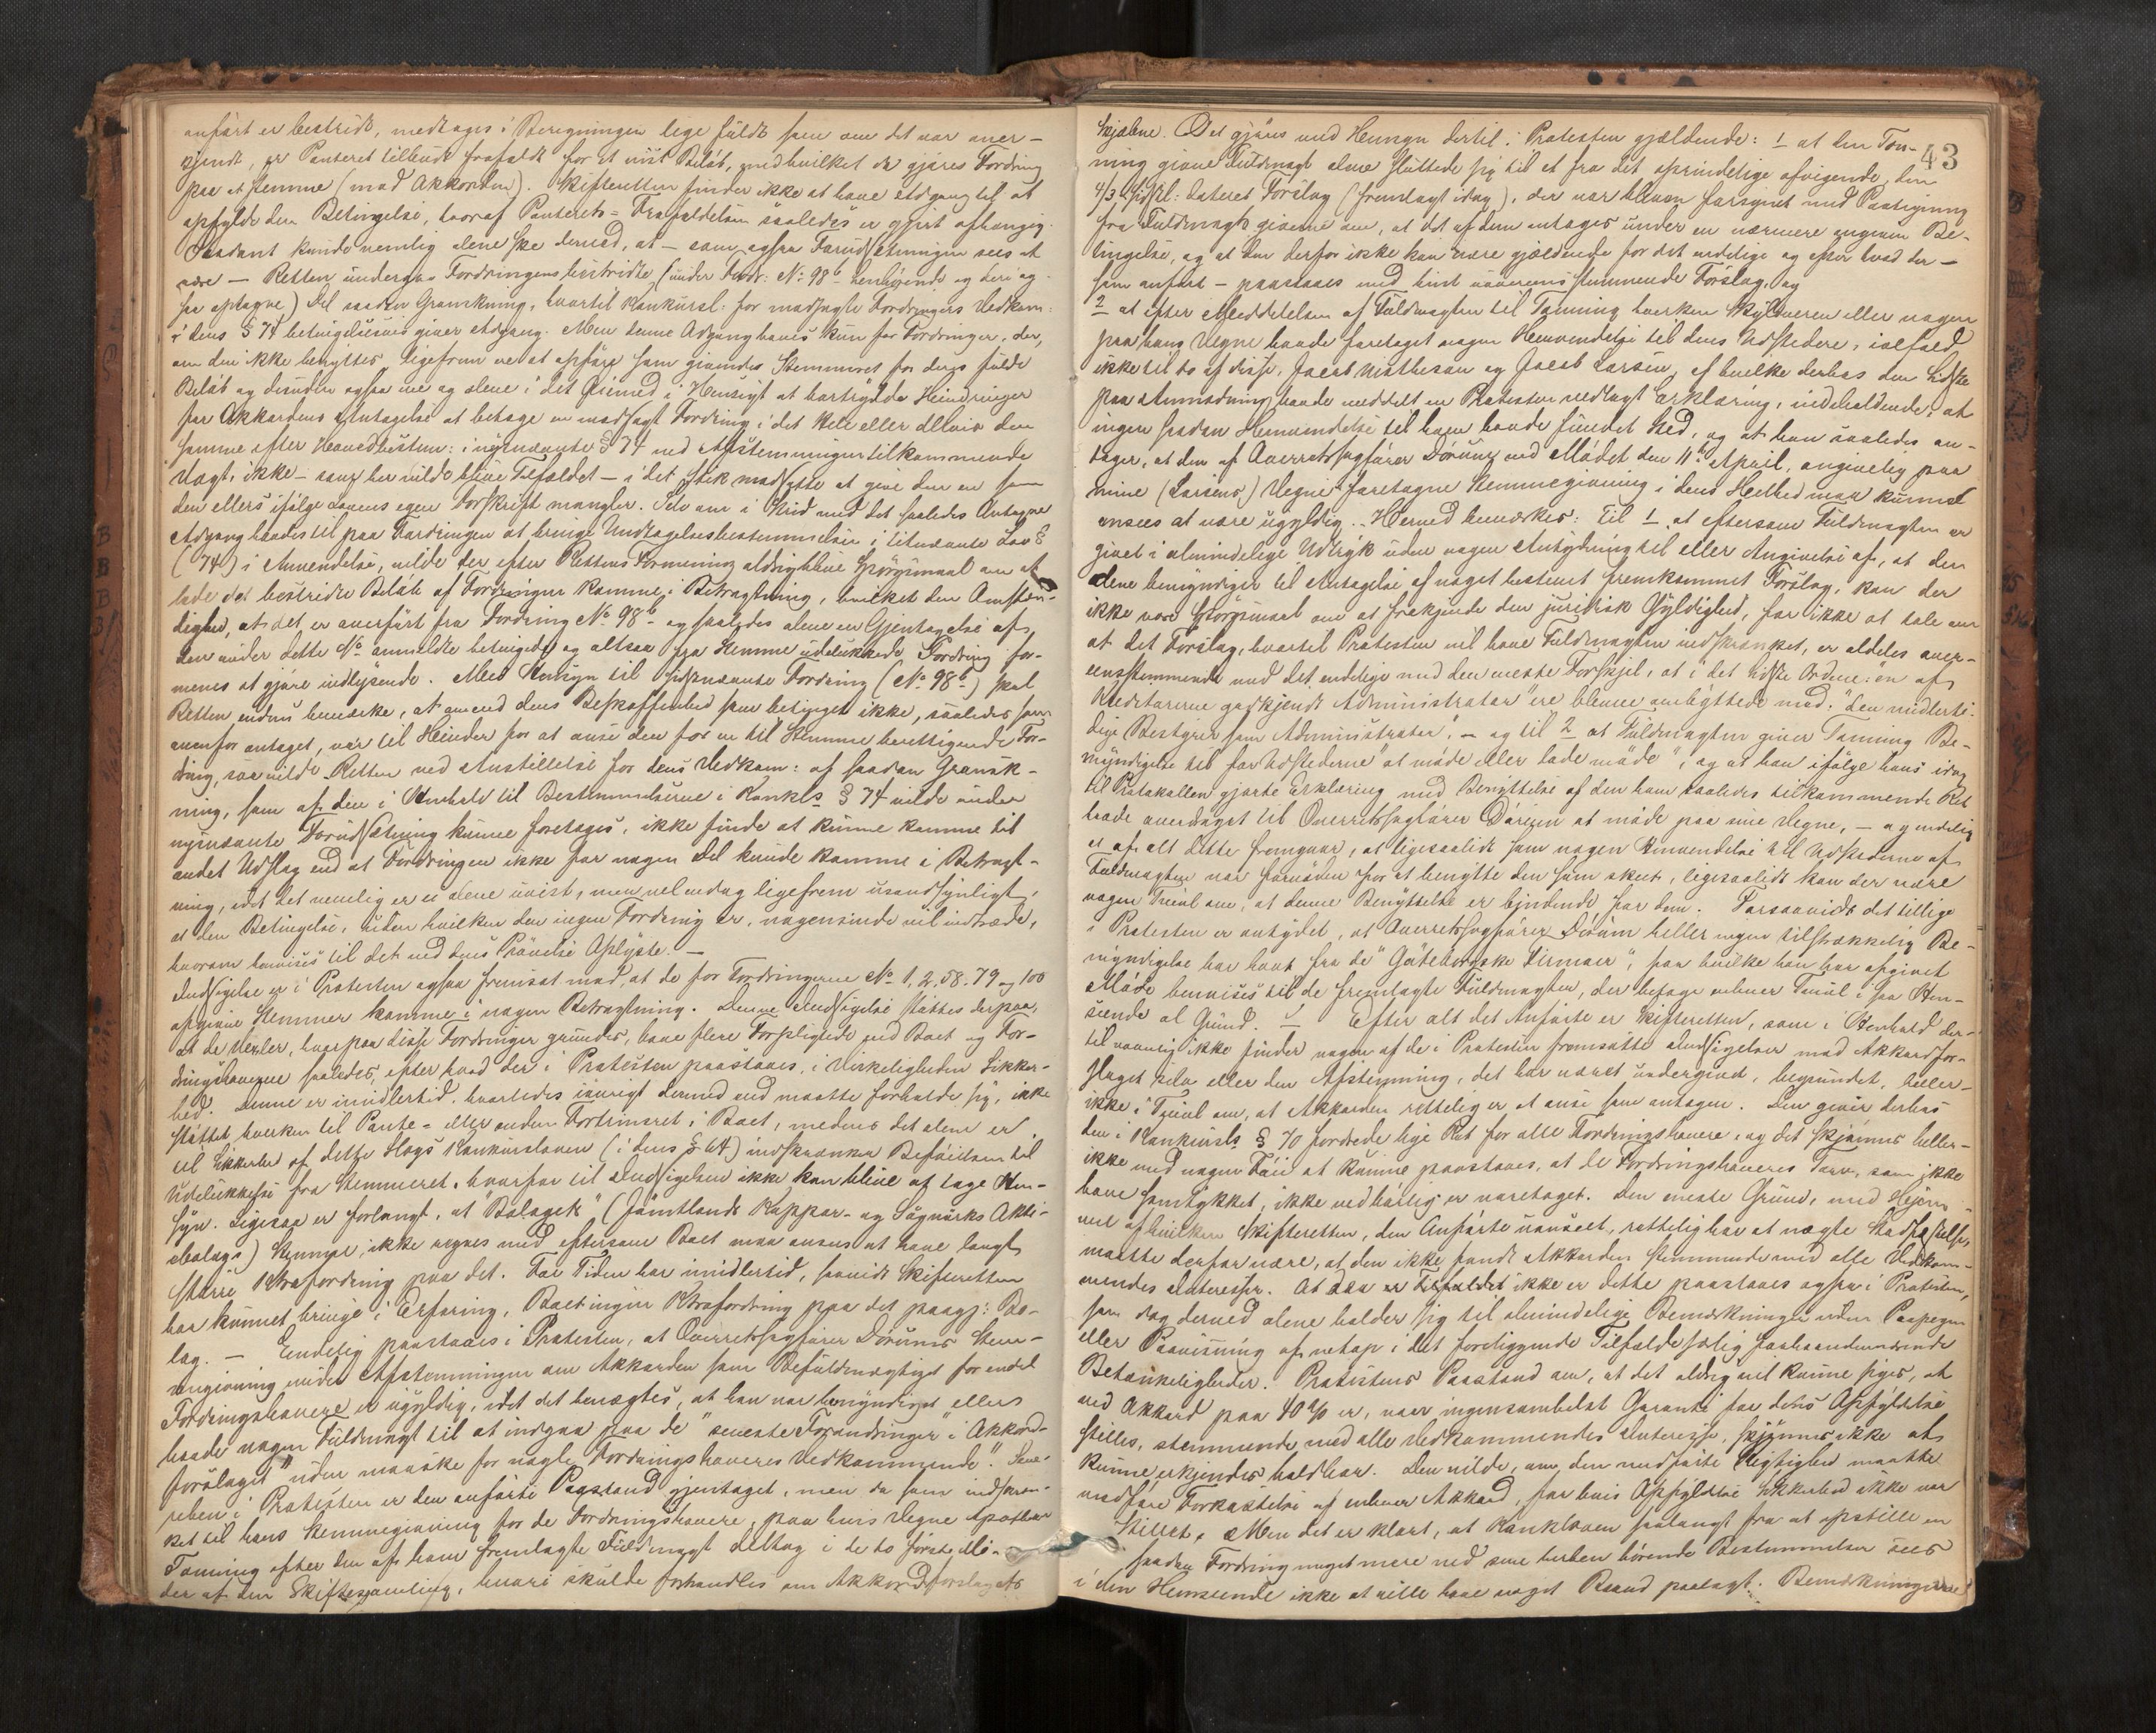 anført er bestridt, medtages i Beregningen lige fuldt som om det var aner-
kjendt, er Panteret tilbudt frafaldt for et vist Beløb, med hvilket der gjøres Fordring
paa at stemme (mod Akkorden). Skifteretten finder ikke at have Adgang til at
opfylde den Betingelse, hvoraf Panterets-Frafaldelsen saaledes er gjort afhængig.
Saadant kunde nemlig alene ske derved, at – som ogsaa Forudsætningen sees at
være – Retten undergav Fordringens bestridte (under Fordr: No 98b henhørende og deri og-
saa optagne) Del saadan Granskning, hvortil Konkursl: for modsagte Fordringers Vedkom:
i dens § 74 betingelsesvis giver Adgang. Men denne Adgang haves kun for Fordringer, der,
om den ikke benyttes ligefrem ere at opføre som givendes Stemmeret for deres fulde
Beløb og desuden ogsaa me og alene i det Øiemed i Hensigt at bortrydde Hindringer
for Akkordens Antagelse at betage en modsagt Fordring i det Hele eller delvis den
samme efter Hovedbestem: i nysnævnte § 74 ved Afstemningen tilkommende
Vægt, ikke – som her vilde blive Tilfældet – i det Stik modsatte at give den en saa-
den ellers ifølge Lovens egen Forskrift mangler. Selv om i Strid med det saaledes Antagne
Adgang havdes til paa Fordringen at bringe Undtagelsesbestemmelsen i citnævnte Lov §
(74) i Anvendelse, vilde der efter Rettens Formening aldrig blive Spørgsmaal om at
lade det bestridte Beløb af Fordringen komme i Betragtning, hvilket den Omstæn-
dighed, at det er overført fra Fordring No 98b og saaledes alene en Gjentagelse af
den under dette No anmeldte betingede og altsaa fra Stemme udelukkede Fordring for-
menes at gjøre indlysende. Med Hensyn til sidstnævnte Fordring (No 98b) skal
Retten endnu bemærke, at om end dens Beskaffenhed som betinget ikke, saaledes som
ovenfor antaget, var til Hinder for at anse den for en til Stemme berettigende For-
dring, saa vilde Retten ved Anstillelse for dens Vedkom: af saadan Gransk-
ning, som af den i Henhold til Bestemmelserne i Konkls § 74 vilde under
nysnævnte Forudsætning kunne foretages, ikke finde at kunne komme til
andet Udslag end at Fordringen ikke for nogen Del kunde komme i Betragt-
ning, idet det nemlig er ei alene uvist, men vel endog ligefrem usandsynligt,
at den Betingelse, uden hvilken den ingen Fordring er, nogensinde vil indtræde,
hvorom henvises til det ved dens Prøvelse Oplyste. –
Indsigelse er i Protesten ogsaa fremsat mod, at de for Fordringerne No 1, 2, 58. 79 og 100
afgivne Stemmer komme i nogen Betragtning. Denne Indsigelse støttes derpaa,
at de Vexler, hvorpaa disse Fordringer grundes, have flere Forpligtede end Boet og For-
dringshaverne saaledes, efter hvad der i Protesten paastaaes, i Virkeligheden Sikker-
hed. Denne er imidlertid, hvorledes iøvrigt dermed end maatte forholde sig, ikke
støttet hverken til Pante- eller anden Fortrinsret i Boet, medens det alene er
til Sikkerhed af dette Slags Konkursloven (i dens § 64) indskrænker Beføielsen til
Udelukkelse fra Stemmeret, hvorfor til Indsigelsen ikke kan blive at tage Hen-
syn. Ligesaa er forlangt, at "Bolagets" (Jämtlands Koppar- og Sågverks Akti-
ebolags) Stemme ikke regnes med eftersom Boet maa ansees at have langt
større Krafordring paa det. For Tiden har imidlertid, saavidt Skifteretten
har kunnet bringe i Erfaring, Boet ingen Krafordring paa det paagj: Bo-
lag. – Endelig paastaaes i Protesten, at Overretssagfører Dørums Stem-
megivning under Afstemningen om Akkorden som Befuldmægtiget for endel
Fordringshavere er ugyldig, idet det benægtes, at han var bemyndiget eller
havde nogen Fuldmagt til at indgaa paa de "seneste Forandringer" i Akkord-
forslaget "uden maaske for nogle Fordringshaveres Vedkommende". Sene-
rehen i Protesten er den anførte Paastand gjentaget, men da som indskræn-
ket til hans Stemmegivning for de Fordringshavere, paa hvis Vegne Apotheker
Tønning efter den af ham fremlagte Fuldmagt deltog i de to første Mø-
der af den Skiftesamling, hvori skulde forhandles om Akkordforslagets
43
Skjæbne. Det gjøres med Hensyn dertil i Protesten gjældende: 1 at den Tøn-
ning givne Fuldmagt alene sluttede sig til et fra det oprindelige afvigende, den
4/3 sidstl: dateret Forslag (fremlagt idag), der var bleven forsynet med Paategning
fra Fuldmagtsgiverne om, at det af dem antages under en nærmere angiven Be-
tingelse, og at den derfor ikke kan være gjældende for det endelige og efter hvad der –
som anført – paastaaes med hint uoverensstemmende Forslag, og
2 at efter Meddelelsen af Fuldmagten til Tønning hverken Skyldneren eller nogen
paa hans Vegne havde foretaget nogen Henvendelse til dens Udstedere, ialfald
ikke til to af disse, Jacob Matheson og Jacob Larsen, af hvilke derhos den Sidste
paa Anmodning havde meddelt en Protesten vedlagt Erklæring, indeholdende, at
ingen saadan Henvendelse til ham havde fundet Sted, og at han saaledes an-
tager, at den af Overretssagfører Dørum ved Mødet den 11te April, angivelig paa
mine (Larsens) Vegne foretagne Stemmegivning i dens Helhed maa kunne
ansees at være ugyldig. – Herved bemærkes: Til 1 at eftersom Fuldmagten er
givet i almindelige Udtryk uden nogen Antydning til eller Angivelse af, at den
alene bemyndiger til Antagelse af noget bestemt fremkommet Forslag, kan der
ikke være Spørgsmaal om at frakjende den juridisk Gyldighed, for ikke at tale om
at det Forslag, hvortil Protesten vil have Fuldmagten indskrænket, er aldeles over-
ensstemmende med det endelige med den eneste Forskjel, at i det Sidste Ordene: "en af
Kreditorerne godkjendt Administrator" ere blevne ombyttede med: "den midlerti-
dige Bestyrer som Administrator". – og til 2 at Fuldmagten giver Tønning Be-
myndigelse til for Udstederne "at møde eller lade møde", og at han ifølge hans idag
til Protokollen gjorte Erklæring med Benyttelse af den ham saaledes tilkommende Ret
havde overdraget til Overretssagfører Dørum at møde paa sine Vegne, – og endelig
at af alt dette fremgaar, at ligesaalidt som nogen Henvendelse til Udstederne af
Fuldmagten var fornøden for at benytte den som skeet, ligesaalidt kan der være
nogen Tvivl om, at denne Benyttelse er bindende for dem. Forsaavidt det tillige
i Protesten er antydet, at Overretssagfører Dørum heller ingen tilstrækkelig Be-
myndigelse har havt fra de "Göteborgske Firmaer", for hvilke han har afgivet
Møde henvises til de fremlagte Fuldmagter, der betage enhver Tvivl i saa Hen-
seende al Grund. – Efter alt det Anførte er Skifteretten, som i Henhold der-
til naavnlig ikke finder nogen af de i Protesten fremsatte Indsigelser mod Akkordfor-
slaget selv eller den Afstemning, det har været undergivet, begrundet, heller-
ikke i Tvivl om, at Akkorden rettelig er at anse som antagen. Den giver derhos
den i Konkursls § 70 fordrede lige Ret for alle Fordringshavere, og det skjønnes heller-
ikke med nogen Føie at kunne paastaaes, at de Fordringshaveres Tarv, som ikke
have samtykket, ikke vedbørlig er varetaget. Den eneste Grund, med Hjem-
mel af hvilken Skifteretten, den Anførte uanseet, rettelig har at nægte Stadfæstelse,
maatte derfor være, at den ikke fandt Akkorden stemmende med alle Vedkom-
mendes Interesser. At saa er Tilfældet ikke er dette paastaaes ogsaa i Protesten,
som dog derved alene holder sig til almindelige Bemærkninger uden Paapegen
eller Paavisning af netop i det foreliggende Tilfælde særlig forhaandenværende
Betænkeligheder. Protestens Paastand om, at det aldrig vil kunne siges, at
ved Akkord paa 40 % er, naar ingensomhelst Garanti for dens Opfyldelse
stilles, stemmende med alle Vedkommendes Interesse, skjønnes ikke at
kunne erkjendes holdbar. Den vilde, om den medførte Rigtighed maatte
medføre Forkastelse af enhver Akkord, for hvis Opfyldelse Sikkerhed ikke var
stillet. Men det er klart, at Konkloven saalangt fra at opstille en
saadan Fordring meget mere ved sine herhen hørende Bestemmelser sees
i den Henseende ikke at ville have noget Baand paalagt. Bemærkningerne